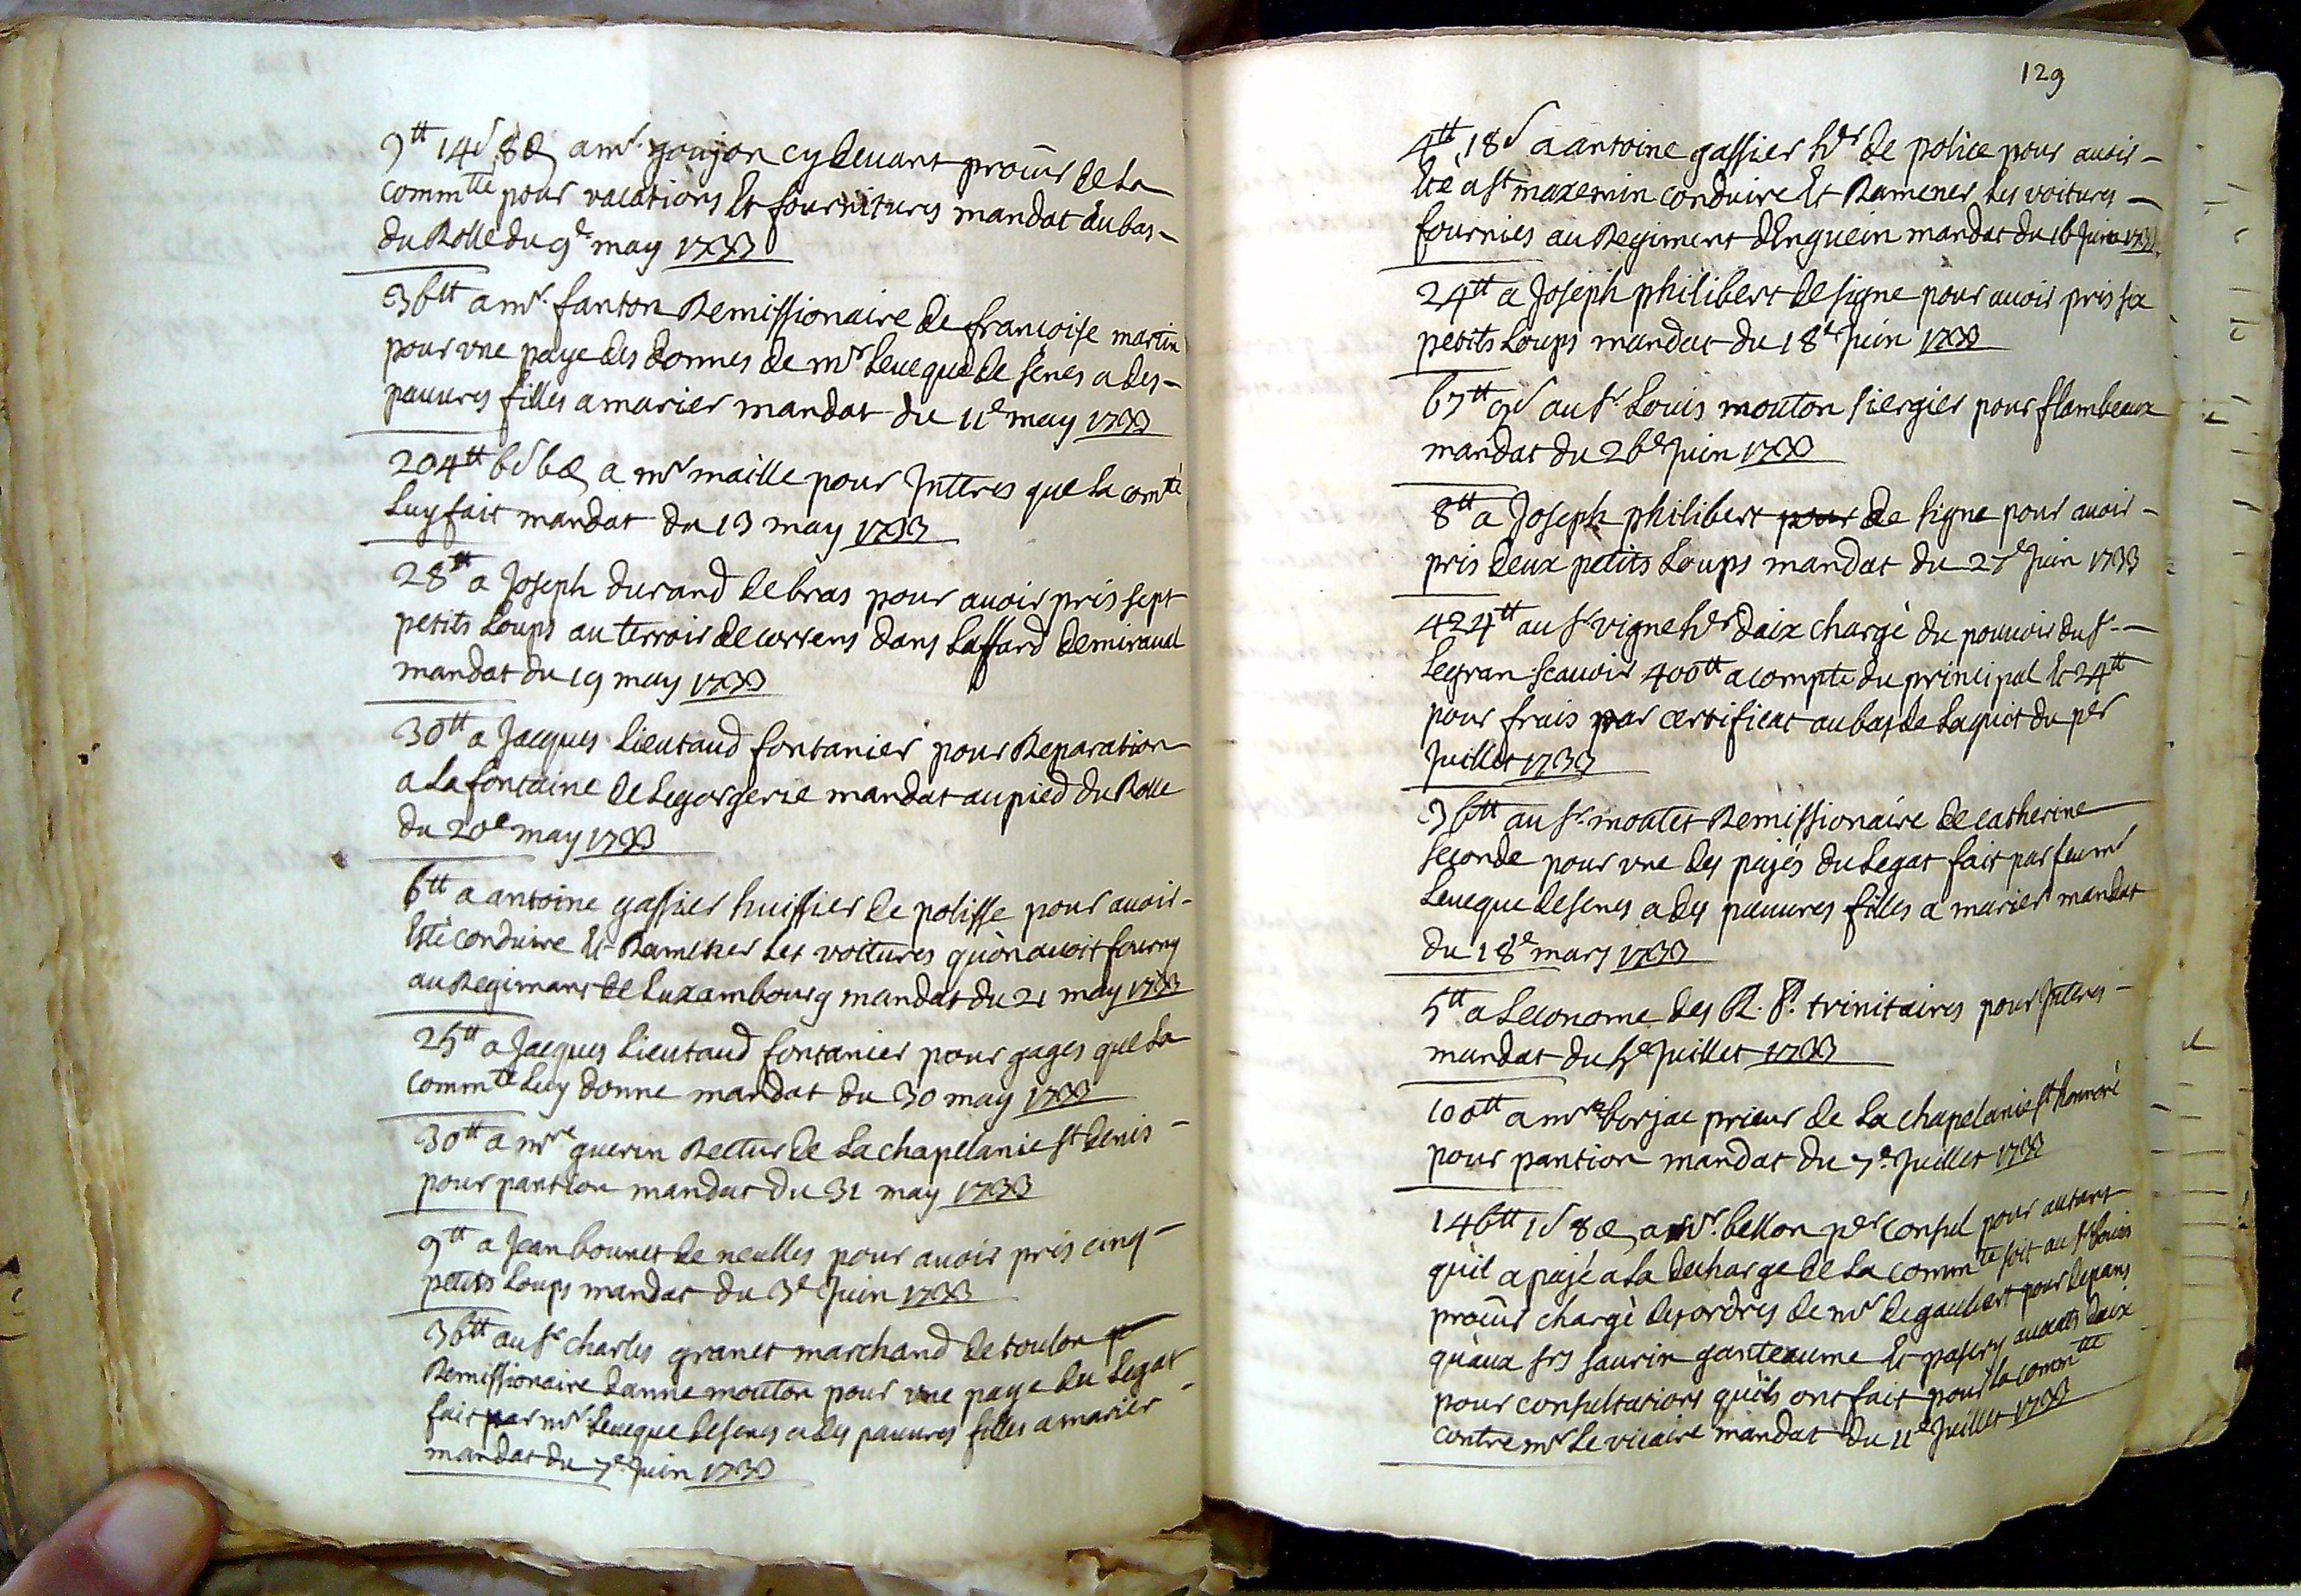 9tt 14s 8d a mr. goujon cy devant procur de la
commtté pour vacations Et fournitures mandat au bas
du Rolle du 9e may 1733
36tt a mr. fanton Remissionaire de francoise martin
pour vne paye des donnes de mr Leveque de senes a des
pauvres filles a marier mandat du 11e may 1733
204tt 6s 6d a mr maille pour Interes que La comté
Luy fait mandat du 13 may 1733
28tt a Joseph durand de bras pour avoir pris sept
petits Loups au terroir de correns dans Laffard de miraval
mandat du 19 may 1733
30tt a Jacques Lieutaud fontanier pour Reparation
a La fontaine de Legorgerie mandat au pied du Rolle
du 20e may 1733
6tt a antoine gassier huissier de polisse pour avoir
Esté conduire Et Ramener Les voitures qu'on avoit fourny
au Regimant de Luxambourg mandat du 21 may 1733
25tt a Jacques Lieutaud fontanier pour gages que La
commté Luy donne mandat du 30 may 1733
30tt a mre guerin Rectur de La chapelanie st denis
pour pantion mandat du 31 may 1733
9tt a Jean bounet de neulles pour avoir pris cinq
petits Loups mandat du 3e Juin 1733
36tt au sr charles granet marchand de toulon
Remissionaire danne mouton pour vne paye du Legat
fait par mr Leveque de senes a des pauvres filles a marier
mandat du 7e Juin 1733
129
4tt 18s a antoine gassier her de police pour avoir
Eté a st maxemin conduire Et Ramener Les voitures
fournies au Regiment d'Enguein mandat du 16 Juin 1733
24tt a Joseph philibert de signe pour avoir pris six
petits Loups mandat du 18e Juin 1733
67tt 9s au sr Louis mouton siergier pour flambeaux
mandat du 26e Juin 1733
8tt a Joseph philibert pour de signe pour avoir
pris deux petits Loups mandat du 27e Juin 1733
424tt au sr vigne her daix chargé du pouvoir du sr
Legran scavoir 400tt a compte du principal Et 24tt
pour frais par certificat au bas de Laquit du per
Juillet 1733
36tt au sr moutet Remissionaire de catherine
seconde pour vne des pajés du Legat fait par feu mr
Leveque de senes a des pauvres filles a marier mandat
du 18e mars 1733
5tt a Leconome des R. P. trinitaires pour Interes
mandat du 5e Juillet 1733
100tt a mre borjac prieur de La chapelanie st honnoré
pour pantion mandat du 7e Juillet 1733
146tt 1s 8d a mr. bellon per consul pour autant
qu'il a pajé a La decharge de La commté soit au sr bouis
procur chargé des ordres de mr de gaubert pour depans
qu'aux srs saurin ganteaume Et pasery avocats daix
pour consultations qu'ils ont fait pour La commtté
contre mr Le vicaire mandat du 11e Juillet 1733